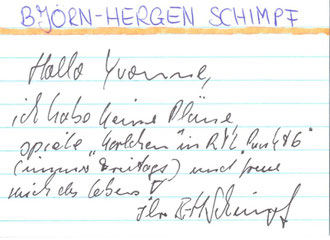 BJÖRN-HERGEN SCHIMPF
Hallo Yvonne,
ich habe keine Pläne,
spiele „Karlchen" in RTL
(immer freitags) und freue
mich des Lebens
Ihr B-H Schimpf